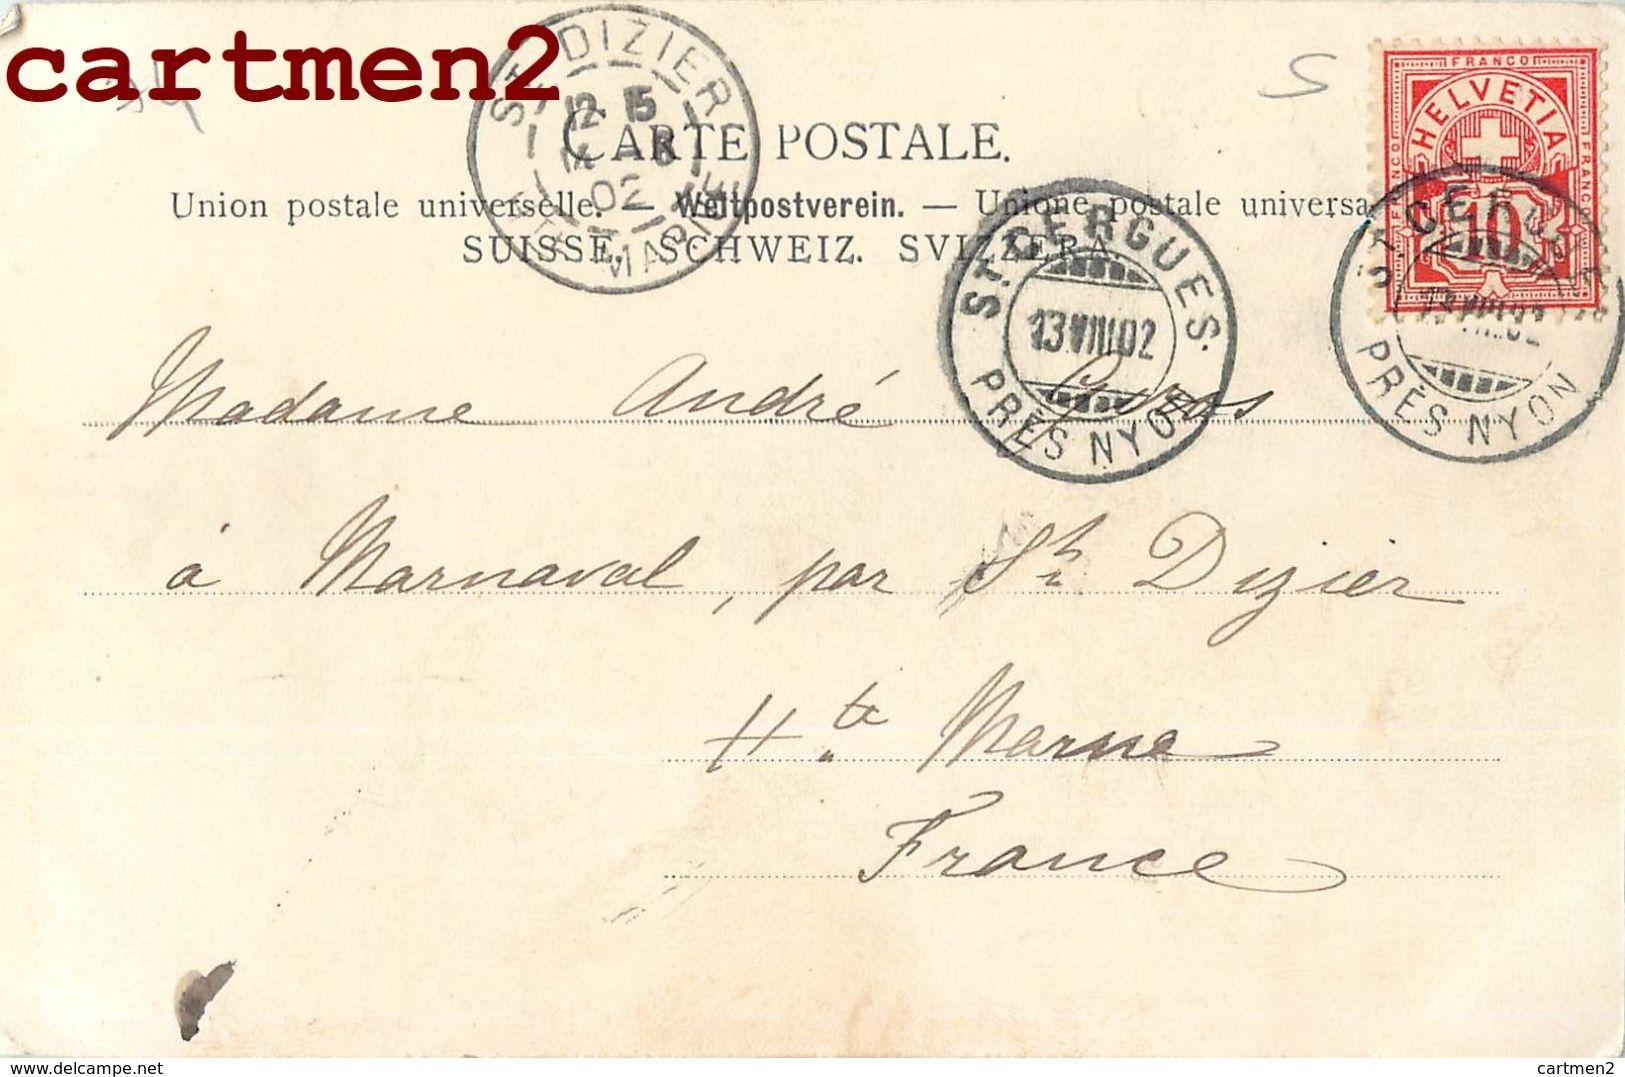 cartmen2
ST DIZIER
12 15
02
HTE MARNE
CARTE POSTALE.
Union postale universelle. — Weltpostverein. — Unione postale universa
SUISSE. SCHWEIZ. SVIZZERA.
FRANCO
HELVETIA
FRANCO
FRANCO
10
ST CERGUES.
13.VIII.02
PRÈS NYON
ST CERGUES.
13.VIII.02
PRÈS NYON
Madame André
à Marnaval, par St Dizier
Hte Marne
France
delcampe.net
cartmen2